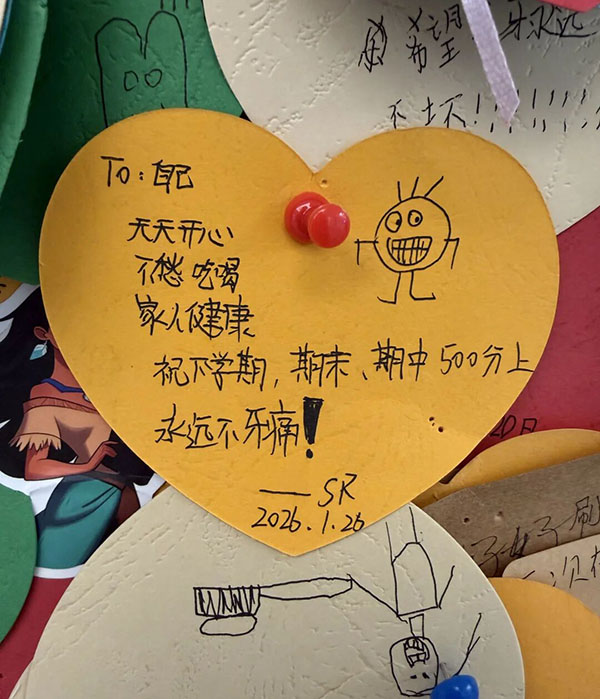 希望 牙永远
不坏!!!!!!!!
To:自己
天天开心
不愁吃喝
家人健康
祝下学期,期末、期中500分上
永远不牙痛!
——SR
2026.1.26
20日
刷